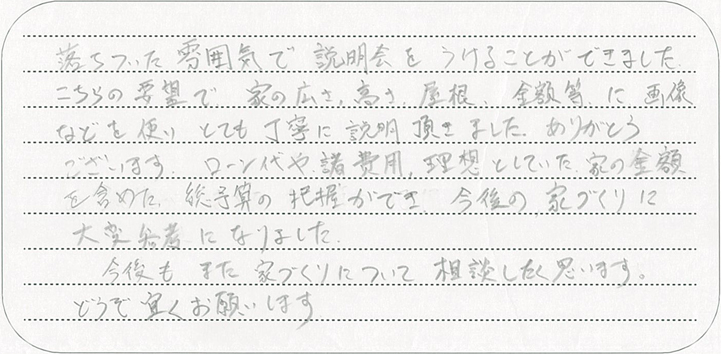 落ちついた 雰囲気で 説明会を うけることができました.
こちらの 要望で 家の広さ,高さ,屋根、金額等、に 画像
などを 使い とても 丁寧に 説明 頂きました. ありがとう
ございます. ローン代や 諸費用, 理想としていた 家の金額
を含めた, 総予算の 把握ができ, 今後の 家づくりに
大変参考になりました.
今後も また 家づくりについて 相談したく思います。
どうぞ 宜くお願いします